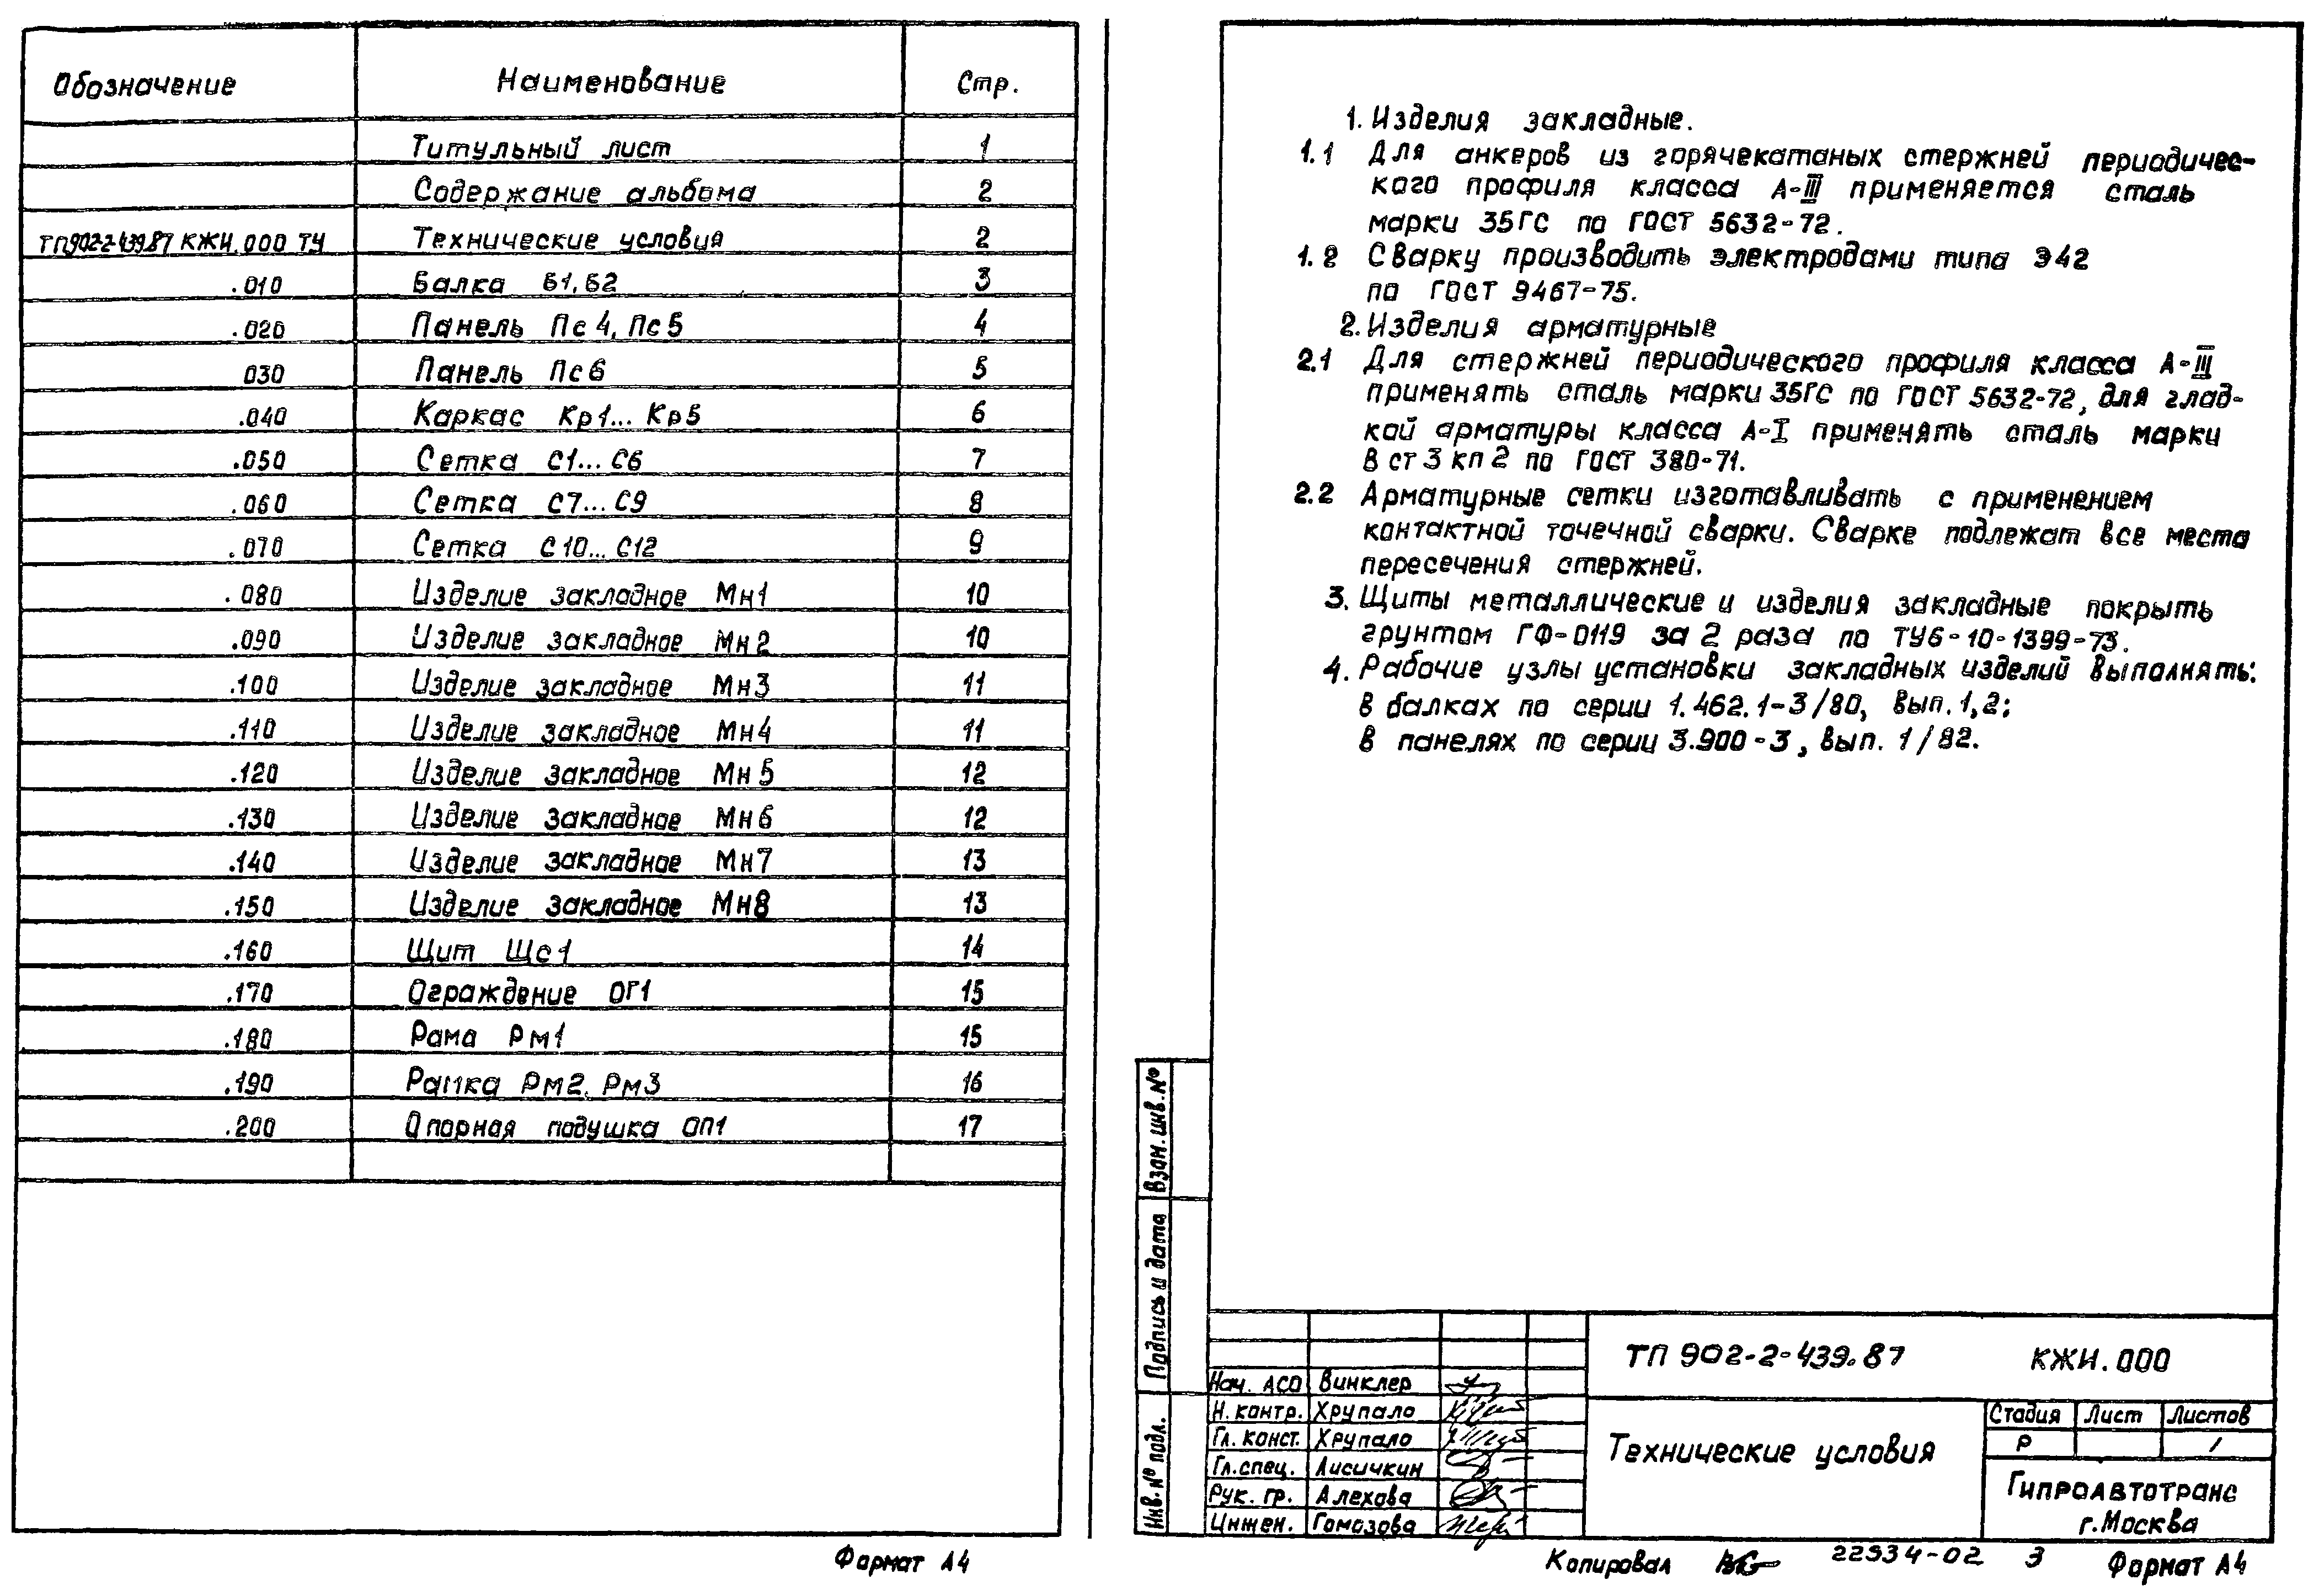 Обозначение Наименование Стр.
Титульный лист 1
Содержание альбома 2
ТП902-2-439.87 КЖИ.000 ТУ Технические условия 2
.010 Балка Б1, Б2 3
.020 Панель Пс4, Пс5 4
030 Панель Пс6 5
.040 Каркас Кр1... Кр5 6
.050 Сетка С1... С6 7
.060 Сетка С7... С9 8
.070 Сетка С10... С12 9
.080 Изделие закладное Мн1 10
.090 Изделие закладное Мн2 10
.100 Изделие закладное Мн3 11
.110 Изделие закладное Мн4 11
.120 Изделие закладное Мн5 12
.130 Изделие закладное Мн6 12
.140 Изделие закладное Мн7 13
.150 Изделие закладное Мн8 13
.160 Щит Щс1 14
.170 Ограждение ОГ1 15
.180 Рама Рм1 15
.190 Рамка Рм2, Рм3 16
.200 Опорная подушка ОП1 17
Формат А4
1. Изделия закладные.
1.1 Для анкеров из горячекатаных стержней периодичес-
кого профиля класса А-III применяется сталь
марки 35ГС по ГОСТ 5632-72.
1.2 Сварку производить электродами типа Э42
по ГОСТ 9467-75.
2. Изделия арматурные
2.1 Для стержней периодического профиля класса А-III
применять сталь марки 35ГС по ГОСТ 5632-72, для глад-
кой арматуры класса А-I применять сталь марки
В ст 3 кп 2 по ГОСТ 380-71.
2.2 Арматурные сетки изготавливать с применением
контактной точечной сварки. Сварке подлежат все места
пересечения стержней.
3. Щиты металлические и изделия закладные покрыть
грунтом ГФ-0119 за 2 раза по ТУ6-10-1399-73.
4. Рабочие узлы установки закладных изделий выполнять:
в балках по серии 1.462.1-3/80, вып. 1,2;
в панелях по серии 3.900-3, вып. 1/82.
Взам. инв. №
Подпись и дата
Инв. № подл.
Нач. АСО Винклер
Н. контр. Хрупало
Гл. конст. Хрупало
Гл. спец. Лисичкин
Рук. гр. Алехова
Инжен. Гомозова
ТП 902-2-439.87 КЖИ.000
Технические условия
Стадия Лист Листов
Р 1
Гипроавтотранс
г. Москва
Копировал 22534-02 3 Формат А4